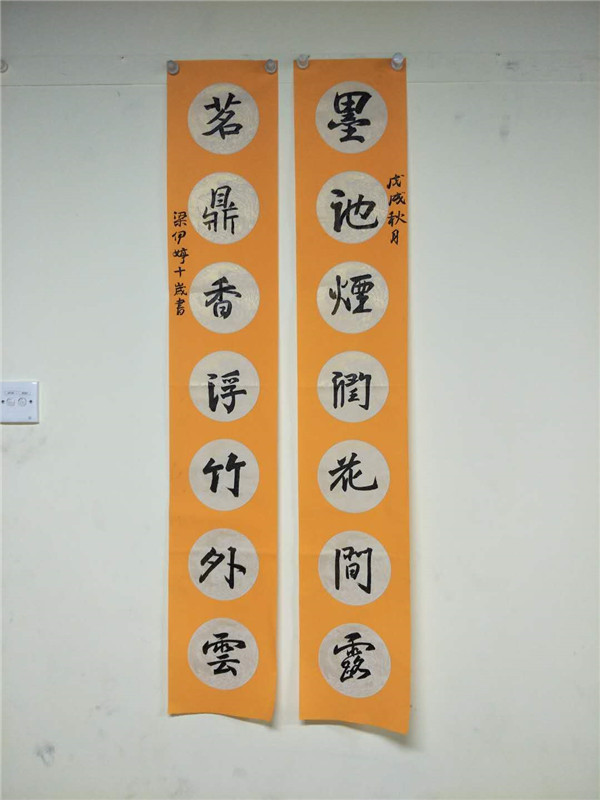 墨池煙潤花間露
戊戌秋月
茗鼎香浮竹外雲
梁伊婷十歲書